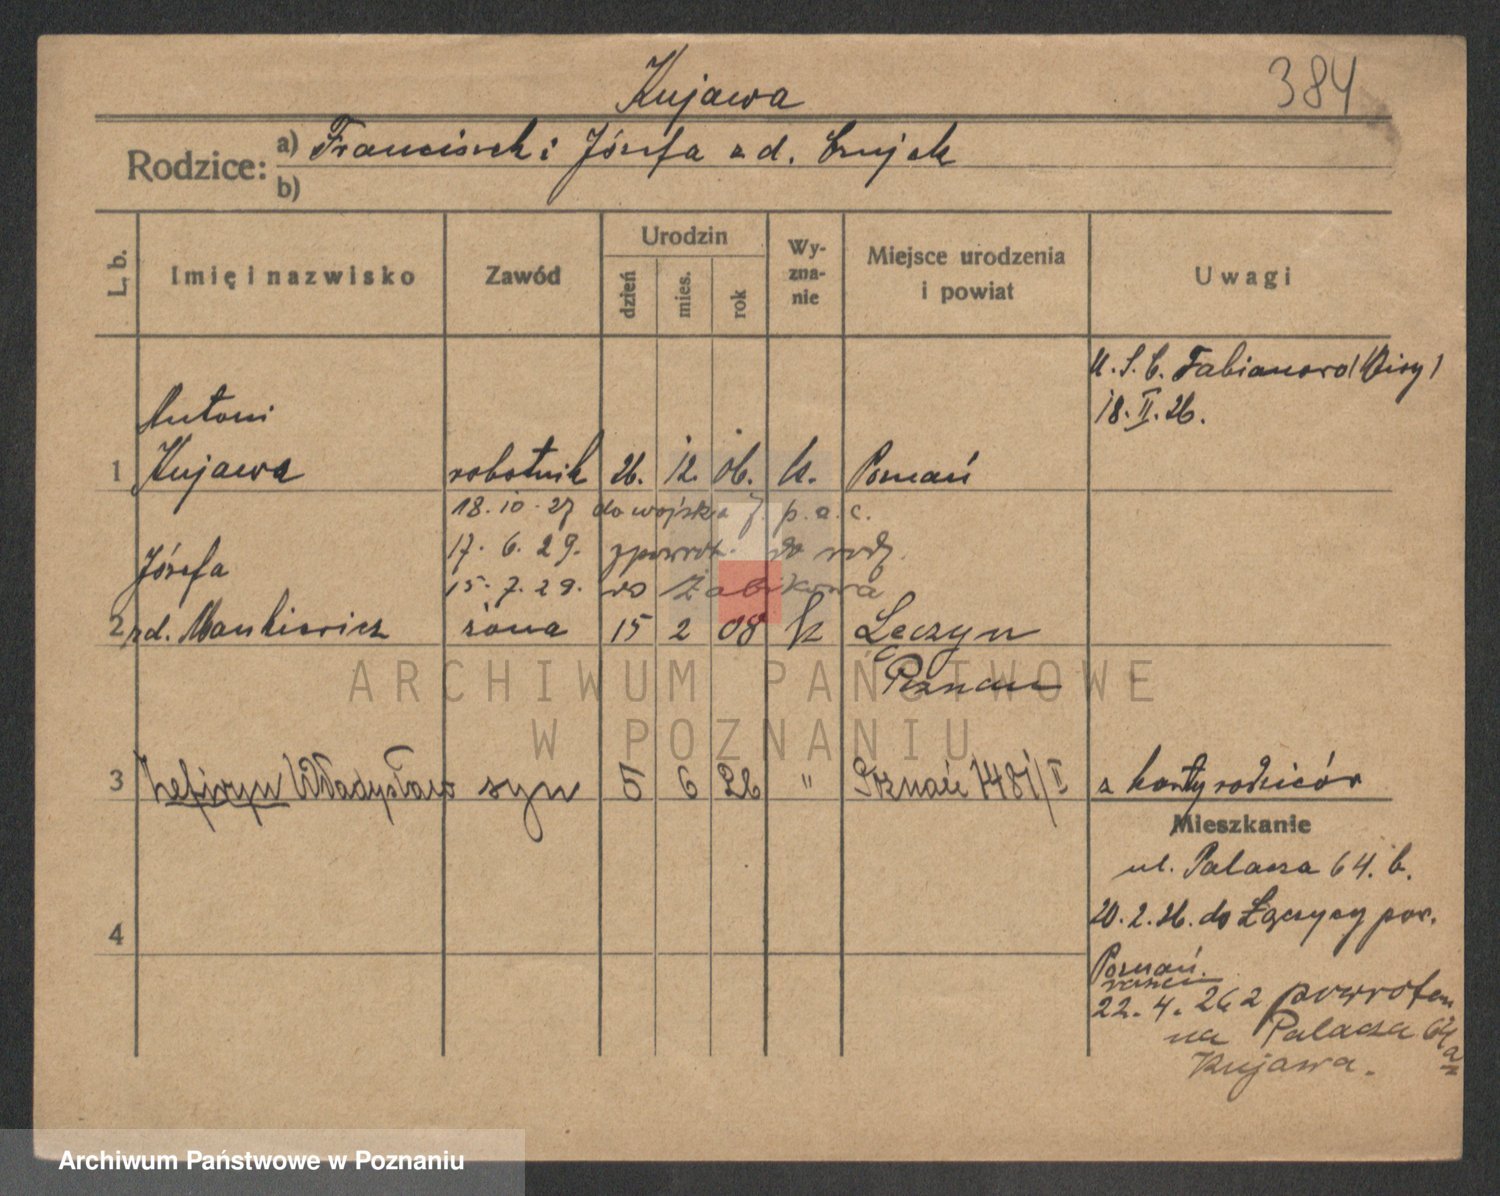 Kujawa
384
Rodzice: a) Franciszek i Józefa z d. Czujek
b)
L. b.
Imię i nazwisko
Zawód
Urodzin
dzień
mies.
rok
Wy-
zna-
nie
Miejsce urodzenia
i powiat
Uwagi
U. S. C. Fabianowo
18. II. 26.
Antoni
1 Kujawa robotnik 26. 12. 06. k. Poznań
18. 10. 27 do wojska 7. p. a. c.
17. 6. 29. zpowrot. do rodz.
Józefa
15. 7. 29. do Żabikowa
2 zd. Mankiewicz żona 15 2 08 k Łęczyn
Poznań
3 Zefiryn Władysław syn 5 6 26 " Poznań 1481/I z karty rodziców
Mieszkanie
ul. Palacza 64. b.
20. 2. 26. do Łęczycy pow.
4
Poznań.
22. 4. 26 z powrotem
na Palacza 64
a
Kujawa.
ARCHIWUM PAŃSTWOWE
W POZNANIU
Archiwum Państwowe w Poznaniu